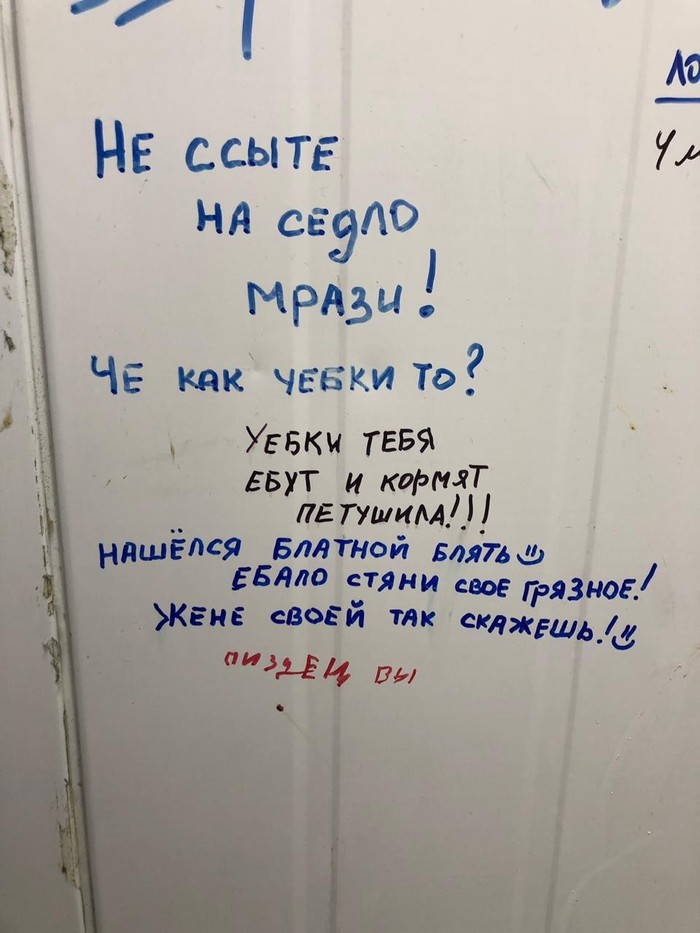 НЕ ССЫТЕ
НА СЕДЛО
МРАЗИ!
ЧЕ КАК УЕБКИ ТО?
УЕБКИ ТЕБЯ
ЕБУТ И КОРМЯТ
ПЕТУШИЛА!!!
НАШЁЛСЯ БЛАТНОЙ БЛЯТЬ
ЕБАЛО СТЯНИ СВОЕ ГРЯЗНОЕ!
ЖЕНЕ СВОЕЙ ТАК СКАЖЕШЬ!
ПИЗДЕЦ ВЫ